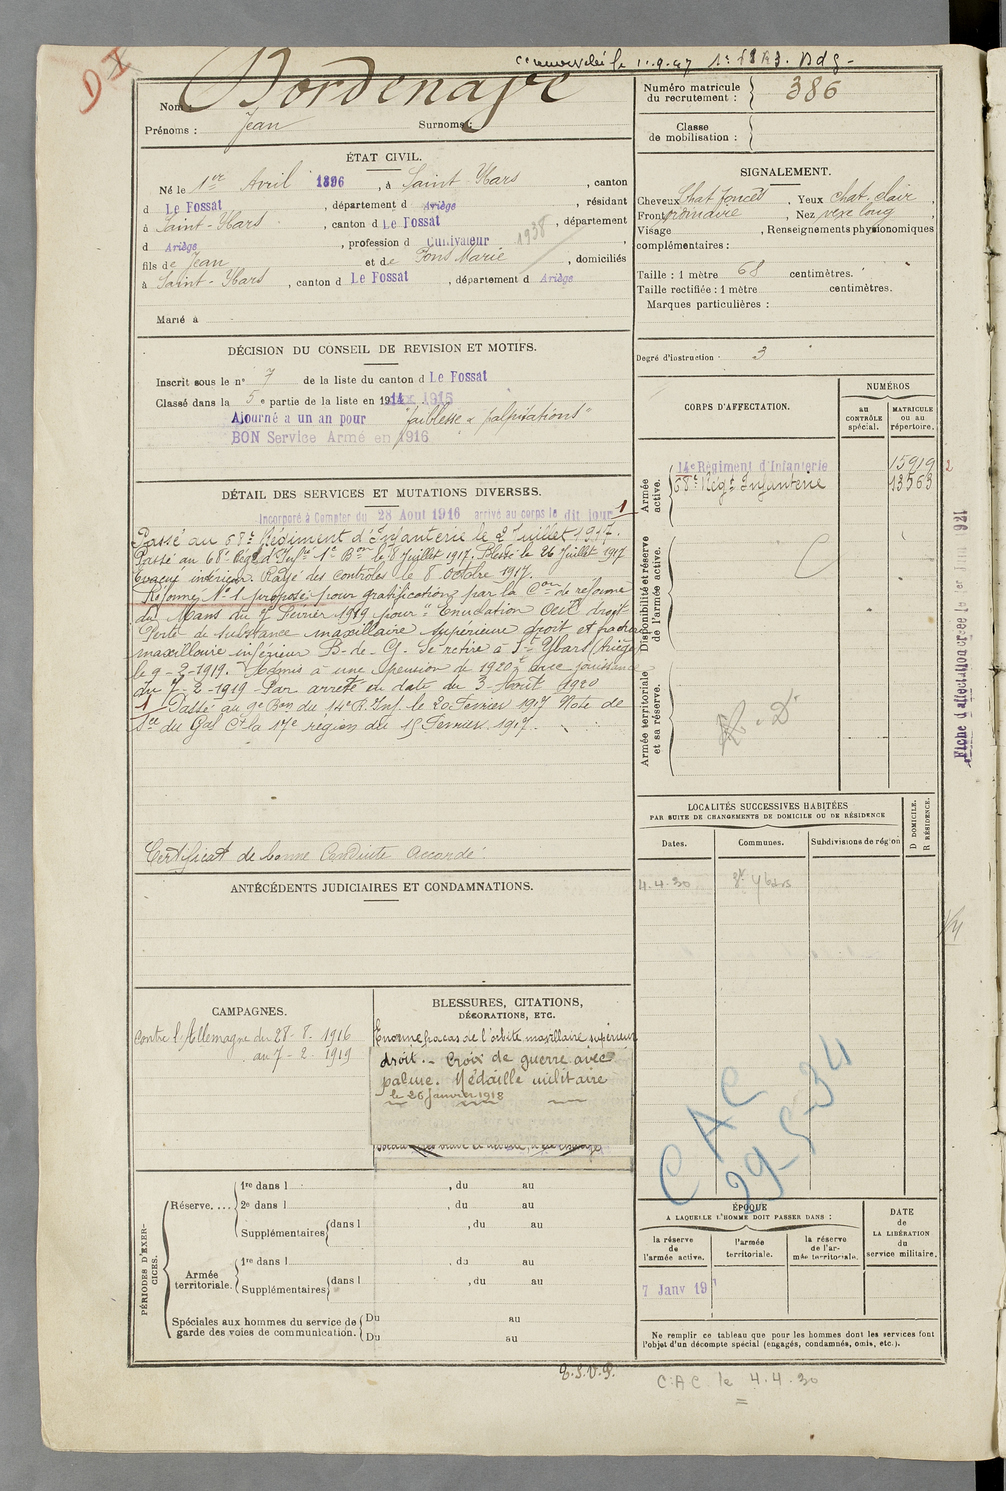 D I
le 1-9-47
Nom : Bordenave
Prénoms : Jean Surnoms :
Numéro matricule du recrutement : 386
Classe de mobilisation :
ÉTAT CIVIL.
Né le 1er Avril 1896, à Saint-Ybars, canton
d Le Fossat, département d Ariège, résidant
à Saint-Ybars, canton d Le Fossat, département
d Ariège, profession d Cultivateur 1938
fils de Jean et de Pons Marie, domiciliés
à Saint-Ybars, canton d Le Fossat, département d Ariège
Marié à
SIGNALEMENT.
Cheveux Chat foncés, Yeux chat clair,
Front ordinaire, Nez long
Visage , Renseignements physionomiques
complémentaires :
Taille : 1 mètre 68 centimètres.
Taille rectifiée : 1 mètre centimètres.
Marques particulières :
Degré d'instruction : 3
DÉCISION DU CONSEIL DE REVISION ET MOTIFS.
Inscrit sous le n° 7 de la liste du canton d Le Fossat
Classé dans la 5e partie de la liste en 1915
Ajourné a un an pour "faiblesse & palpitations"
BON Service Armé en 1916
DÉTAIL DES SERVICES ET MUTATIONS DIVERSES.
Incorporé à Compter du 28 Aout 1916 arrivé au corps le dit jour 1
Passé au Régiment d'Infanterie le 2 Juillet 1917.
Passé au 68e Regt d'Infie 1e Bon le 8 Juillet 1917. Blessé le 26 Juillet 1917
Evacué intérieur. Rayé des contrôles le 8 Octobre 1917.
Réformé N°1 proposé pour gratification par la Con de réforme
du Mans du 7 Février 1919 pour "Enucléation Oeil droit
Perte de substance maxillaire supérieure droit et fracture
maxillaire inférieur B-de-G- Se retire à St Ybars (Ariège)
le 9-2-1919. Admis à une pension de 1920f avec jouissance
du 7-2-1919 Par arrêté en date du 3 Août 1920
1 Passé au 9e Bon du 14e R. Inf. le 20 Fevrier 1917 Note de
Sce du Gal Ct la 17e région du 15 Fevrier 1917.
Certificat de bonne Conduite Accordé.
CORPS D'AFFECTATION.
NUMÉROS
au CONTRÔLE spécial.
MATRICULE ou au répertoire.
Armée active.
14e Régiment d'Infanterie 15919 2
68e Régt Infanterie 13563
Disponibilité et réserve de l'armée active.
Armée territoriale et sa réserve.
R. D.
Fiche d'affectation créée le 1er Juin 1921
ANTÉCÉDENTS JUDICIAIRES ET CONDAMNATIONS.
LOCALITÉS SUCCESSIVES HABITÉES
PAR SUITE DE CHANGEMENTS DE DOMICILE OU DE RÉSIDENCE
D DOMICILE.
R RÉSIDENCE.
Dates. Communes. Subdivisions de région
4.4.30 St Ybars
CAMPAGNES.
Contre l'Allemagne du 28-8-1916
au 7-2-1919
BLESSURES, CITATIONS,
DÉCORATIONS, ETC.
Enorme fracas de l'orbite maxillaire supérieur
droit.- Croix de guerre avec
palme. Médaille militaire
le 26 Janvier 1918
CAC
29-5-34
PÉRIODES D'EXERCICES.
Réserve.... 1re dans l , du au
2e dans l , du au
Supplémentaires dans l , du au
Armée territoriale. 1re dans l , du au
Supplémentaires dans l , du au
Spéciales aux hommes du service de Du au
garde des voies de communication. Du au
ÉPOQUE
A LAQUELLE L'HOMME DOIT PASSER DANS :
la réserve de l'armée active.
l'armée territoriale.
la réserve de l'armée territoriale.
DATE de LA LIBÉRATION du service militaire.
7 Janv 19
Ne remplir ce tableau que pour les hommes dont les services font
l'objet d'un décompte spécial (engagés, condamnés, omis, etc.).
T.S.V.P.
CAC le 4.4.30